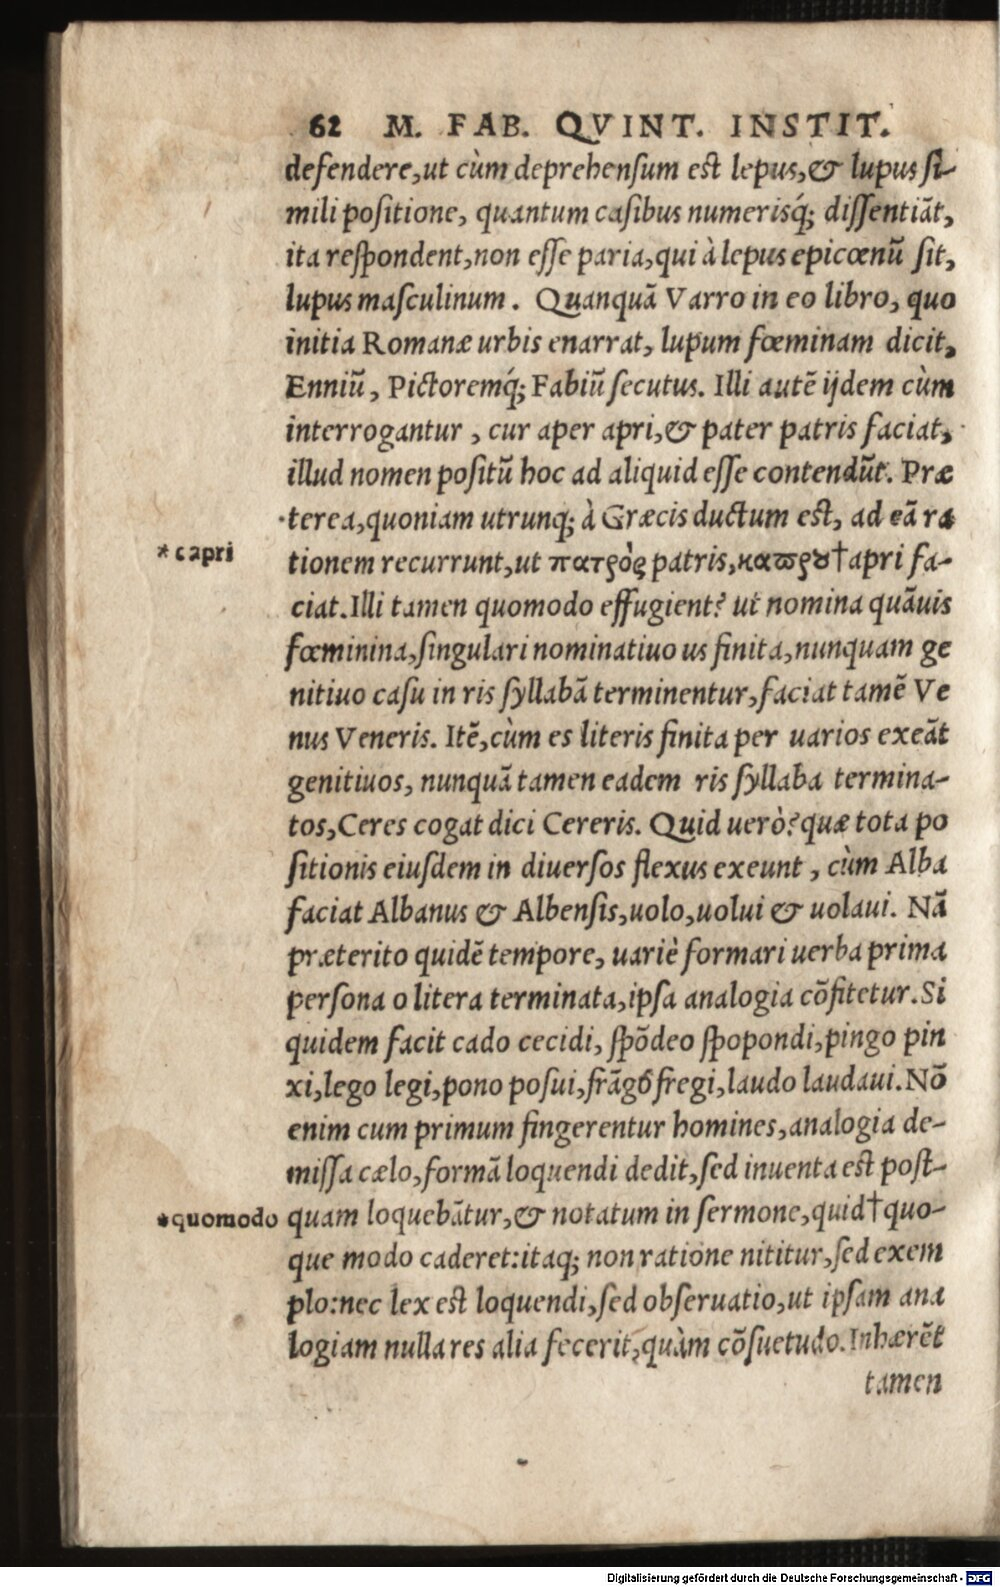 62 M. FAB. QVINT. INSTIT.
defendere,ut cùm deprehensum est lepus,& lupus si-
mili positione, quantum casibus numerisq́; dissentiāt,
ita respondent,non esse paria,qui à lepus epicœnū sit,
lupus masculinum. Quanquā Varro in eo libro, quo
initia Romanæ urbis enarrat, lupum fœminam dicit,
Enniū, Pictoremq́; Fabiū secutus. Illi autē ijdem cùm
interrogantur, cur aper apri,& pater patris faciat,
illud nomen positū hoc ad aliquid esse contendūt. Præ
terea,quoniam utrunq; à Græcis ductum est, ad eā ra
*capri
tionem recurrunt,ut πατρὸς patris,καπρου†apri fa-
ciat.Illi tamen quomodo effugient? ut nomina quāuis
fœminina,singulari nominatiuo us finita,nunquam ge
nitiuo casu in ris syllabā terminentur,faciat tamē Ve
nus Veneris. Itē,cùm es literis finita per uarios exeāt
genitiuos, nunquā tamen eadem ris syllaba termina-
tos,Ceres cogat dici Cereris. Quid uerò?quæ tota po
sitionis eiusdem in diuersos flexus exeunt, cùm Alba
faciat Albanus & Albensis,uolo,uolui & uolaui. Nā
præterito quidē tempore, uariè formari uerba prima
persona o litera terminata,ipsa analogia cōfitetur.Si
quidem facit cado cecidi, spōdeo spopondi,pingo pin
xi,lego legi,pono posui,frāgo fregi,laudo laudaui.Nō
enim cum primum fingerentur homines,analogia de-
missa cælo,formā loquendi dedit,sed inuenta est post-
*quomodo
quam loquebātur,& notatum in sermone,quid†quo-
que modo caderet:itaq; non ratione nititur,sed exem
plo:nec lex est loquendi,sed obseruatio,ut ipsam ana
logiam nulla res alia fecerit,quàm cōsuetudo.Inhærēt
tamen
Digitalisierung gefördert durch die Deutsche Forschungsgemeinschaft - DFG